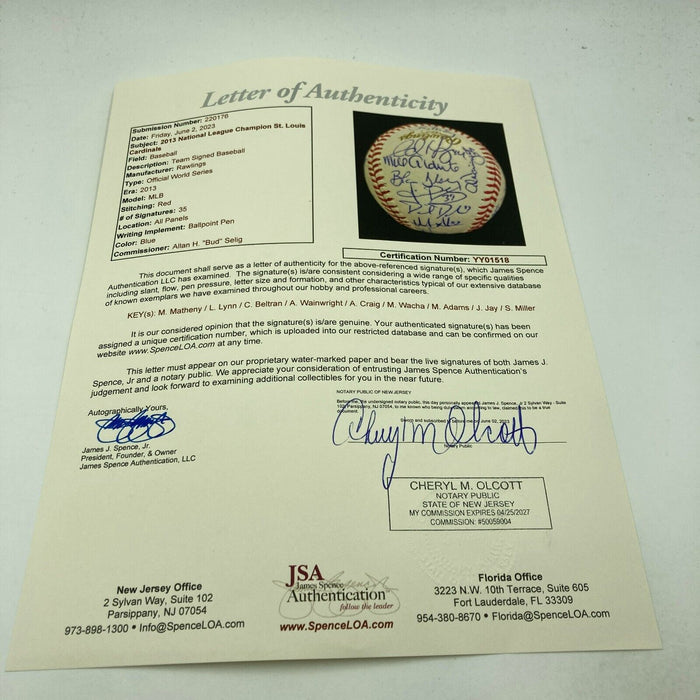 Letter of Authenticity
Submission Number: 220176
Date: Friday, June 2, 2023
Subject: 2013 National League Champion St. Louis
Cardinals
Field: Baseball
Description: Team Signed Baseball
Manufacturer: Rawlings
Type: Official World Series
Era: 2013
Model: MLB
Stitching: Red
# of Signatures: 35
Location: All Panels
Writing Implement: Ballpoint Pen
Color: Blue
Commissioner: Allan H. "Bud" Selig
Certification Number: YY01518
This document shall serve as a letter of authenticity for the above-referenced signature(s), which James Spence
Authentication LLC has examined. The signature(s) is/are consistent considering a wide range of specific qualities
including slant, flow, pen pressure, letter size and formation, and other characteristics typical of our extensive database
of known exemplars we have examined throughout our hobby and professional careers.
KEY(s): M. Matheny / L. Lynn / C. Beltran / A. Wainwright / A. Craig / M. Wacha / M. Adams / J. Jay / S. Miller
It is our considered opinion that the signature(s) is/are genuine. Your authenticated signature(s) has been
assigned a unique certification number, which is uploaded into our restricted database and can be confirmed on our
website www.SpenceLOA.com at any time.
This letter must appear on our proprietary water-marked paper and bear the live signatures of both James J.
Spence, Jr and a notary public. We appreciate your consideration of entrusting James Spence Authentication's
judgement and look forward to examining additional collectibles for you in the near future.
NOTARY PUBLIC OF NEW JERSEY
Before me, the undersigned notary public, this day personally appeared James J. Spence, Jr 2 Sylvan Way - Suite
102 Parsippany, NJ 07054, to me known who being duly sworn according to law, claimed has to be a true
document.
Sworn and subscribed before me on June 02, 2023
Notary Public
Cheryl M Olcott
Autographically Yours,
James J. Spence, Jr.
President, Founder, & Owner
James Spence Authentication, LLC
CHERYL M. OLCOTT
NOTARY PUBLIC
STATE OF NEW JERSEY
MY COMMISSION EXPIRES 04/25/2027
COMMISSION: #50059004
New Jersey Office
2 Sylvan Way, Suite 102
Parsippany, NJ 07054
973-898-1300 • Info@SpenceLOA.com
JSA
James Spence
Authentication
follow the leader
www.SpenceLOA.com
Florida Office
3223 N.W. 10th Terrace, Suite 605
Fort Lauderdale, FL 33309
954-380-8670 • Florida@SpenceLOA.com